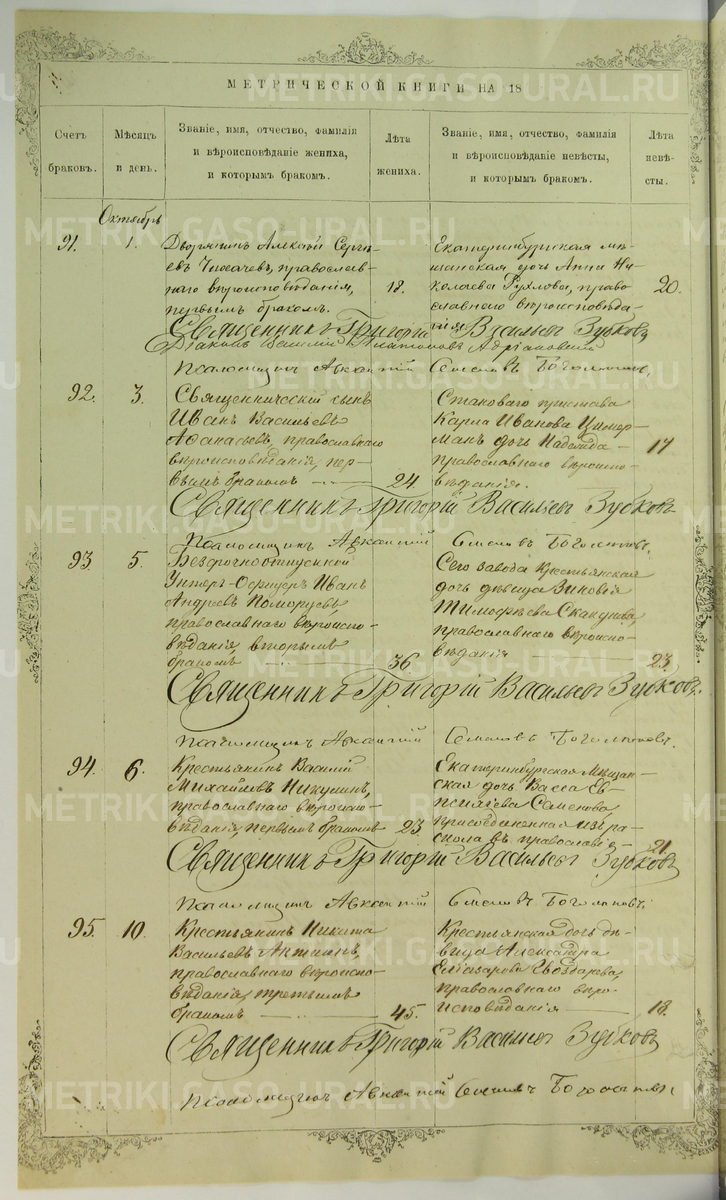 МЕТРИЧЕСКОЙ КНИГИ НА 18
Счетъ браковъ.
Мѣсяцъ и день.
Званіе, имя, отчество, фамилія и вѣроисповѣданіе жениха, и которымъ бракомъ.
Лѣта жениха.
Званіе, имя, отчество, фамилія и вѣроисповѣданіе невѣсты, и которымъ бракомъ.
Лѣта невѣсты.
Октябрь
91.
1.
Дворянинъ Алексѣй Сергѣ-
евъ Чихачевъ, православ-
наго вѣроисповѣданія,
первымъ бракомъ.
18.
Екатеринбургская мѣ-
щанская дочь Анна Ни-
колаева Рухлова, право
славнаго вѣроисповѣда-
нія
20.
Священникъ Григорій Васильевъ Зубковъ
Діаконъ Василій Платоновъ Адріановскій
Псаломщикъ Авксентій Семеновъ Боголюбовъ.
92.
3.
Священническій сынъ
Иванъ Васильевъ
Афанасьевъ, православнаго
вѣроисповѣданія, пер-
вымъ бракомъ
24
Становаго пристава
Карла Иванова Цимер-
манъ дочь Надежда
православнаго вѣроиспо-
вѣданія.
17
Священникъ Григорій Васильевъ Зубковъ
Псаломщикъ Авксентій Семеновъ Боголюбовъ.
93
5.
Безсрочноотпускной
Унтеръ-Офицеръ Иванъ
Андреевъ Поморцевъ,
православнаго вѣроиспо-
вѣданія, вторымъ
бракомъ
36.
Сего завода крестьянская
дочь дѣвица Зиновія
Тимофѣева
православнаго вѣроиспо-
вѣданія
23.
Священникъ Григорій Васильевъ Зубковъ.
Псаломщикъ Авксентій Семеновъ Боголюбовъ.
94.
6.
Крестьянинъ Василій
Михайловъ Никулинъ,
православнаго вѣроиспо-
вѣданія, первымъ бракомъ
23
Екатеринбургская Мѣщан-
ская дочь Васса Ев-
Саменова,
присоединенная изъ ра-
скола въ православіе
21.
Священникъ Григорій Васильевъ Зубковъ
Псаломщикъ Авксентій Семеновъ Боголюбовъ.
95.
10.
Крестьянинъ Никита
Васильевъ
православнаго вѣроиспо-
вѣданія, третьимъ
бракомъ
45.
Крестьянская дочь дѣ-
вица Александра
Елеазарова Гвоздарева,
православнаго вѣро-
исповѣданія
18.
Священникъ Григорій Васильевъ Зубковъ
Псаломщикъ Авксентій Семеновъ Боголюбовъ
METRIKI.GASO-URAL.RU